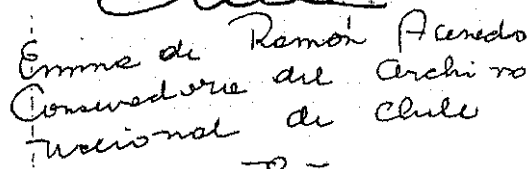 Emma de Ramón Acevedo
Conservadora del Archivo
Nacional de Chile